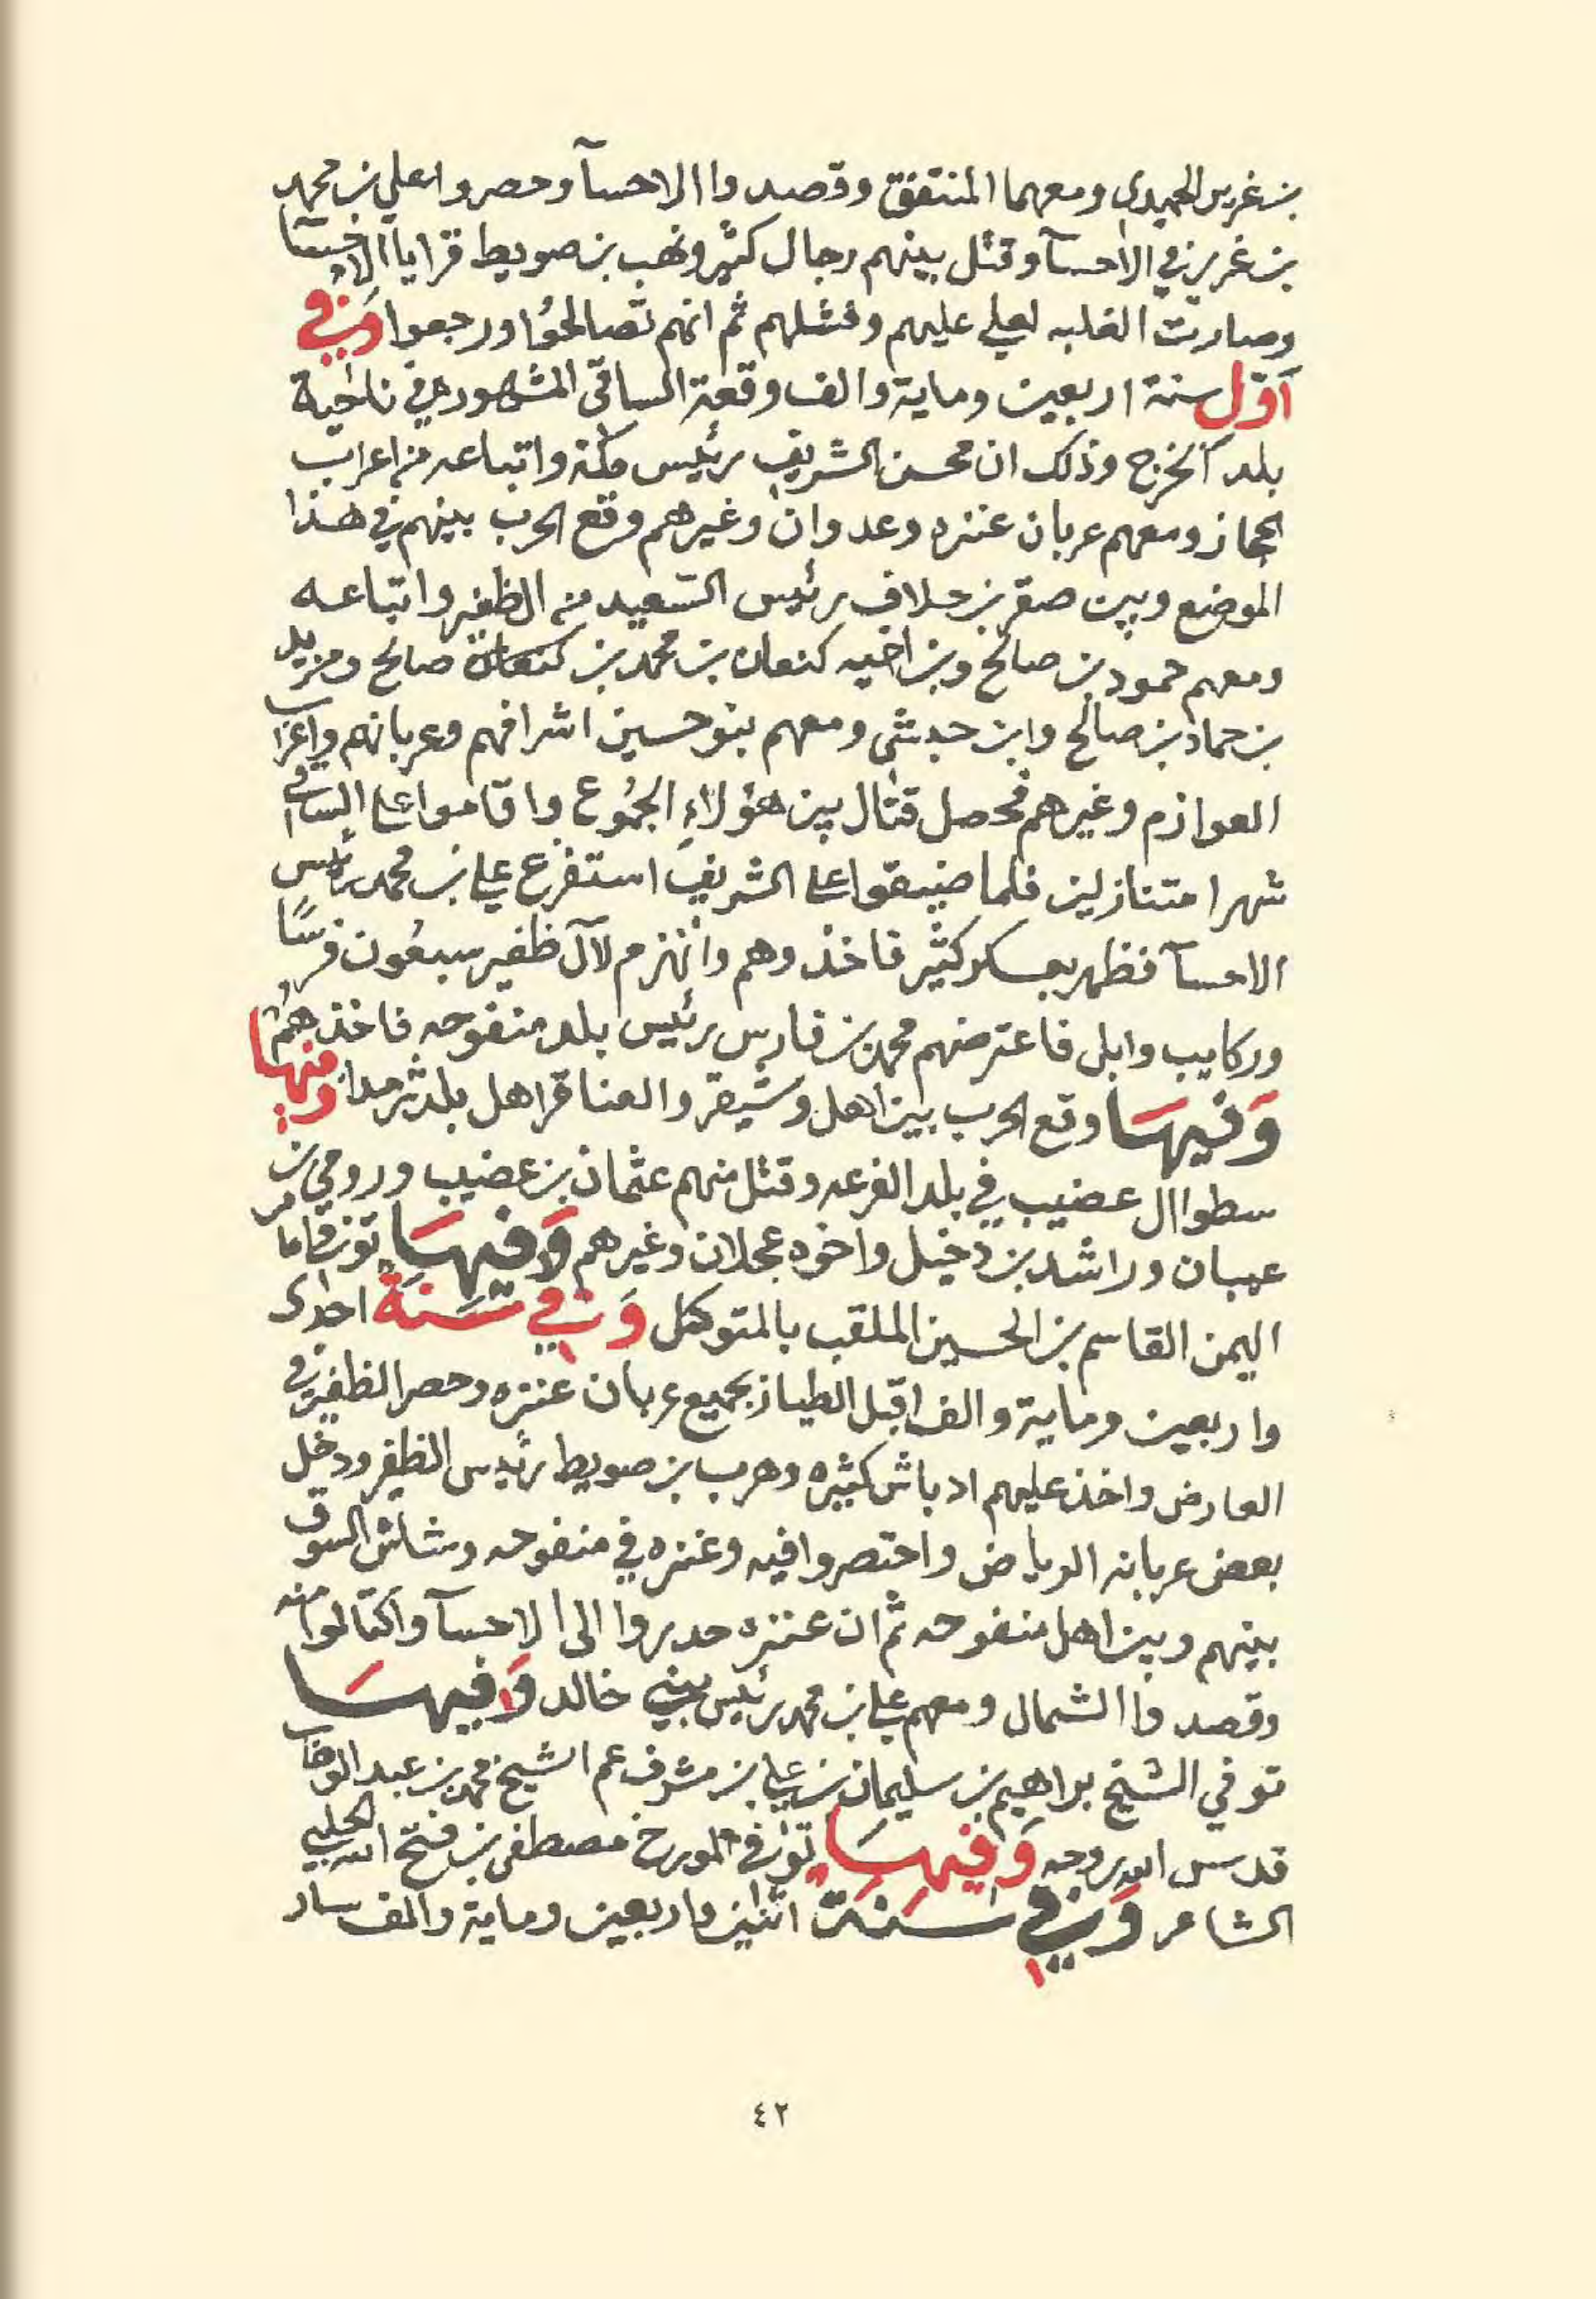 بن غرير الحميدي ومعهما المنتفق وقصدوا الاحسآ وحصروا علي بن محمد
بن غرير في الاحسآ وقتل بينهم رجال كثير ونهب بن صويط قرايا الاحسآ
وصارت الغلبه لعلي عليهم وفشلهم ثم انهم تصالحوا ورجعوا وفي
اول سنة اربعين وماية والف وقعة الساقي المشهوره في ناحية
بلد الخرج وذلك ان محسن الشريف رئيس مكة واتباعه من اعراب
الحجاز ومعهم عربان عنزه وعدوان وغيرهم وقع الحرب بينهم في هذا
الموضع وبين صقر بن حلاف رئيس السعيد من الظفير واتباعه
ومعهم حمود بن صالح وبن اخيه كنعان بن محمد بن كنعان صالح ومزيد
بن حماد بن صالح وابن حبشي ومعهم بنو حسين اشرافهم وعربانهم واعراب
العوازم وغيرهم فحصل قتال بين هؤلاءِ الجُمُوع واقاموا على الساقي
شهرا متنازلين فلما ضيقوا على الشريف استفزع علي بن محمد رئيس
الاحسآ فظهر بعسكر كثير فاخذوهم وانهزم لآل ظفير سبعُون فرسًا
وركايب وابل فاعترضهم محمد بن فارس رئيس بلد منفوحه فاخذهم
وَفيهَا وقع الحرب بين اهل وشيقر والعناقر اهل بلد ثرمدا ومنها
سطوا ال عضيب في بلد الفرعه وقتل منهم عثمان بن عضيب ورومي بن
عهبان وراشد بن دخيل واخوه عجلان وغيرهم وَفيهَا توفي امام
اليمن القاسم بن الحسين الملقب بالمتوكل وَفي سَنة احدى
واربعين وماية والف اقبل الطيار بجميع عربان عنزه وحصر الظفير في
العارض واخذ عليهم ادباش كثيره وهرب بن صويط رئيس الظفير ودخل
بعض عربانه الرياض واحتصروا فيه وعنزه في منفوحه وشاش السوق
بينهم وبين اهل منفوحه ثم ان عنزه حدروا الى الاحسآ واكتالوا منه
وقصدوا الشمال ومعهم علي بن محمد رئيس بني خالد وَفيهَا
توفي الشيخ براهيم بن سليمان بن علي بن مشرف عم الشيخ محمد بن عبد الوهاب
قدس الله روحه وَفيهَا توفي المورخ مصطفى بن فتح الله الحلبي
الشاعر وَفي سَنة اثنين واربعين وماية والف سار
٤٢